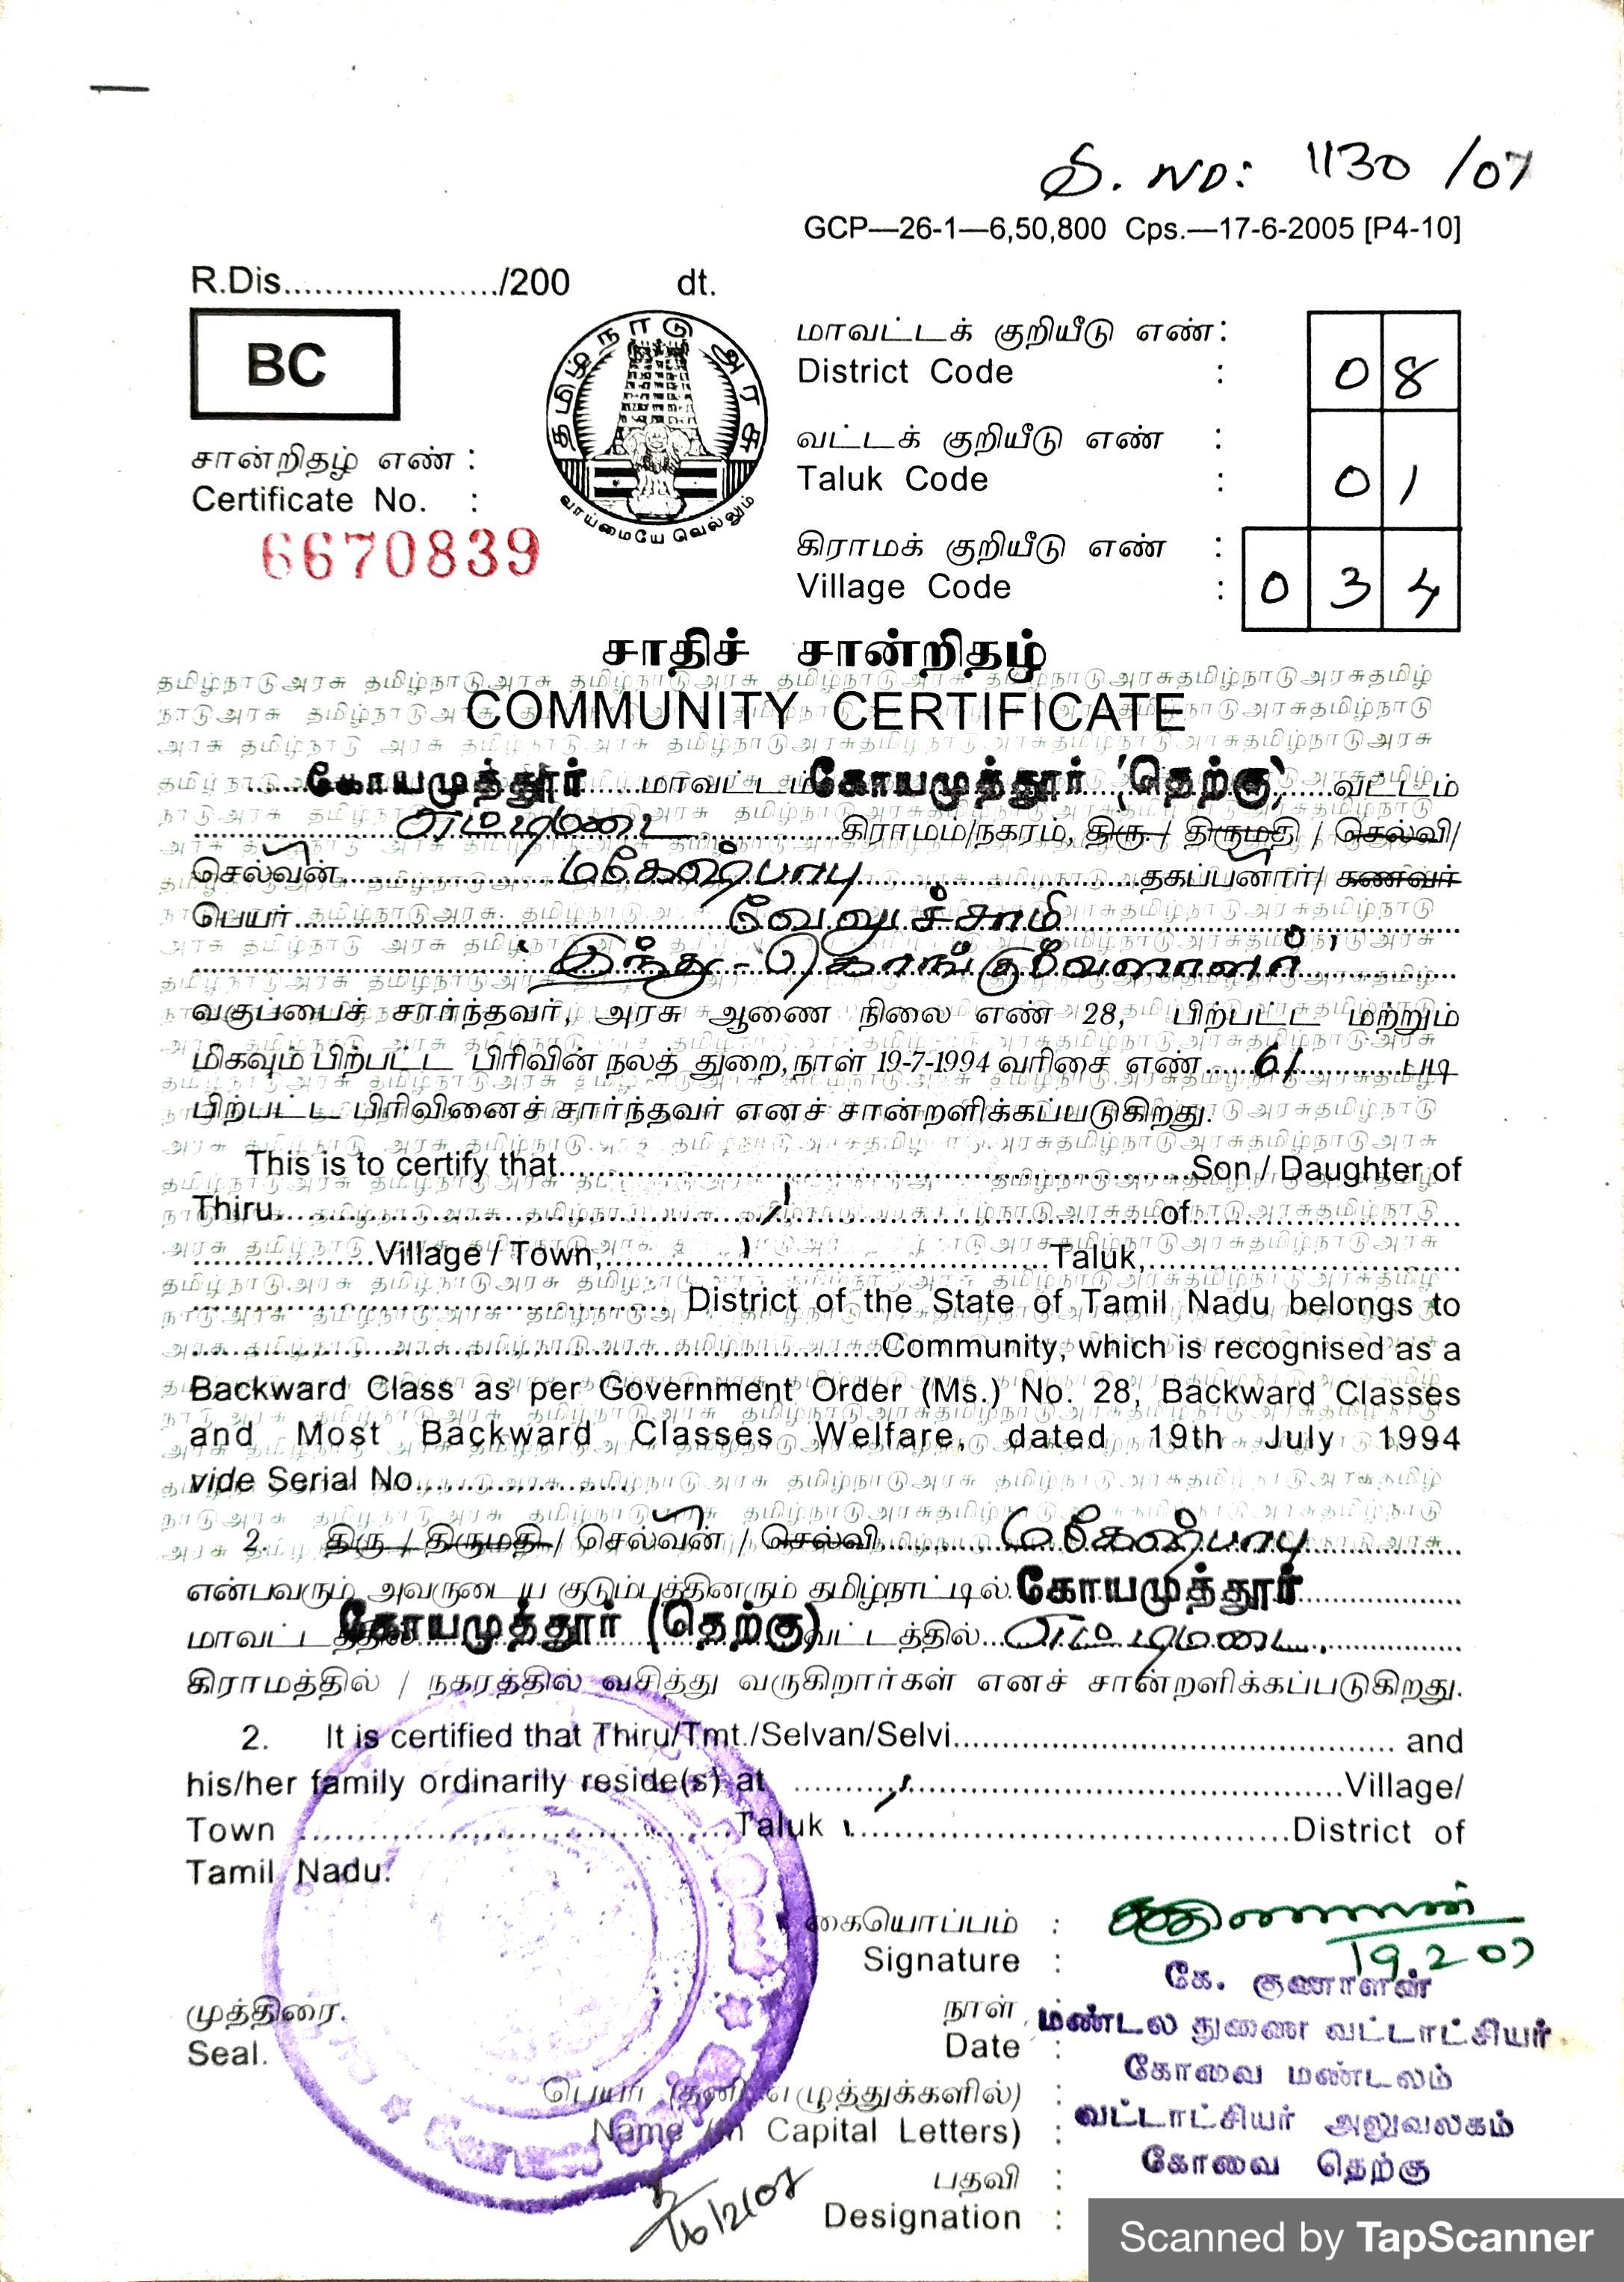 S. NO: 1130 /07
GCP—26-1—6,50,800 Cps.—17-6-2005 [P4-10]
R.Dis...................../200 dt.
BC
தமிழ்நாடு அரசு
வாய்மையே வெல்லும்
மாவட்டக் குறியீடு எண் :
District Code : 0 8
வட்டக் குறியீடு எண் :
Taluk Code : 0 1
கிராமக் குறியீடு எண் :
Village Code : 0 3 4
சான்றிதழ் எண் :
Certificate No. :
6670839
சாதிச் சான்றிதழ்
COMMUNITY CERTIFICATE
கோயமுத்தூர் மாவட்டம் கோயமுத்தூர் (தெற்கு) வட்டம்
எட்டிமடை கிராமம்/நகரம், திரு. / திருமதி / செல்வி/
செல்வன் மகேஷ்பாபு தகப்பனார்/ கணவர்
பெயர் வேலுச்சாமி
இந்து - கொங்குவேளாளர்
வகுப்பைச் சார்ந்தவர், அரசு ஆணை நிலை எண் 28, பிற்பட்ட மற்றும்
மிகவும் பிற்பட்ட பிரிவின் நலத் துறை, நாள் 19-7-1994 வரிசை எண் 61 படி
பிற்பட்ட பிரிவினைச் சார்ந்தவர் எனச் சான்றளிக்கப்படுகிறது.
This is to certify that..........Son / Daughter of
Thiru..........of..........
..........Village / Town,..........Taluk,..........
.........., District of the State of Tamil Nadu belongs to
..........Community, which is recognised as a
Backward Class as per Government Order (Ms.) No. 28, Backward Classes
and Most Backward Classes Welfare, dated 19th July 1994
vide Serial No...........
2. திரு / திருமதி / செல்வன் / செல்வி மகேஷ்பாபு
என்பவரும் அவருடைய குடும்பத்தினரும் தமிழ்நாட்டில் கோயமுத்தூர்
மாவட்டத்தில் கோயமுத்தூர் (தெற்கு) வட்டத்தில் எட்டிமடை
கிராமத்தில் / நகரத்தில் வசித்து வருகிறார்கள் எனச் சான்றளிக்கப்படுகிறது.
2. It is certified that Thiru/Tmt./Selvan/Selvi.......... and
his/her family ordinarily reside(s) at ..........Village/
Town ..........Taluk ..........District of
Tamil Nadu.
கையொப்பம் :
Signature : 19.2.07
கே. குணாளன்
முத்திரை.
Seal.
நாள் : மண்டல துணை வட்டாட்சியர்
Date : கோவை மண்டலம்
பெயர் (தனி எழுத்துக்களில்) :
Name (in Capital Letters) : வட்டாட்சியர் அலுவலகம்
பதவி : கோவை தெற்கு
Designation :
16/2/07
Scanned by TapScanner